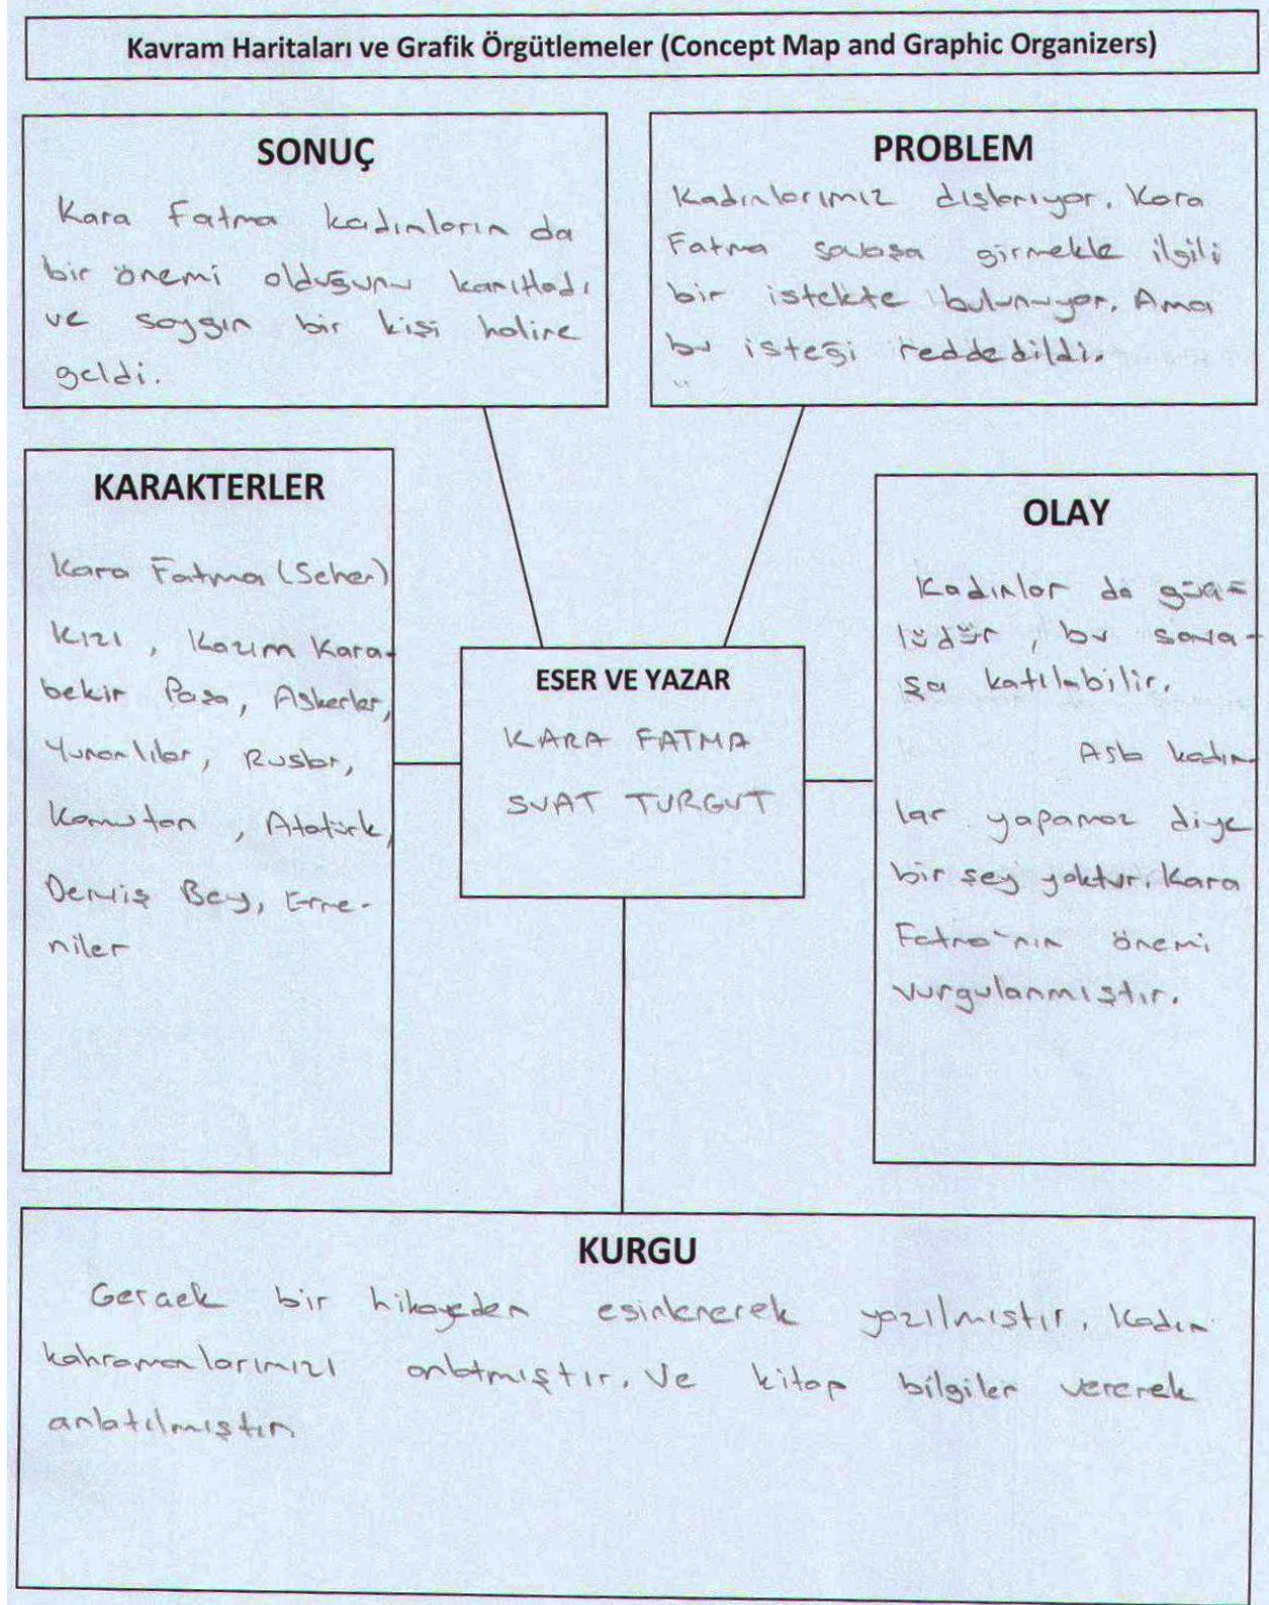 Kavram Haritaları ve Grafik Örgütlemeler (Concept Map and Graphic Organizers)
SONUÇ
Kara Fatma kadınların da
bir önemi olduğunu kanıtladı
ve saygın bir kişi haline
geldi.
PROBLEM
Kadınlarımız dışlanıyor. Kara
Fatma savaşa girmekle ilgili
bir istekte bulunuyor. Ama
bu isteği reddedildi.
KARAKTERLER
Kara Fatma (Seher)
Kızı, Kazım Kara-
bekir Paşa, Askerler,
Yunanlılar, Ruslar,
Komutan, Atatürk,
Derviş Bey, Erme-
niler
ESER VE YAZAR
KARA FATMA
SUAT TURGUT
OLAY
Kadınlar da güç-
lüdür, bu sava-
şa katılabilir.
Asla kadın
lar yapamaz diye
bir şey yoktur. Kara
Fatma'nın önemi
vurgulanmıştır.
KURGU
Gerçek bir hikayeden esinlenerek yazılmıştır. Kadın
kahramanlarımızı anlatmıştır. Ve kitap bilgiler vererek
anlatılmıştır.